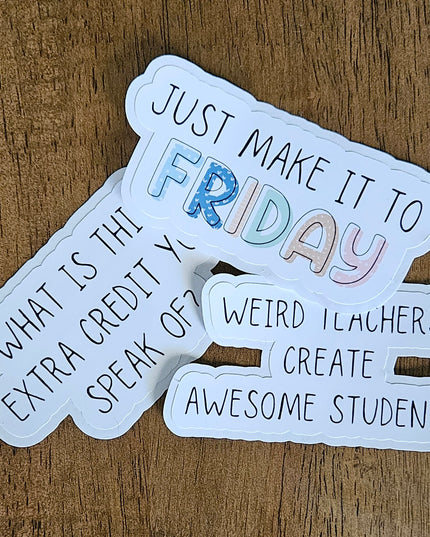 JUST MAKE IT TO
FRIDAY
WHAT IS THI
EXTRA CREDIT YO
SPEAK OF?
WEIRD TEACHER
CREATE
AWESOME STUDEN